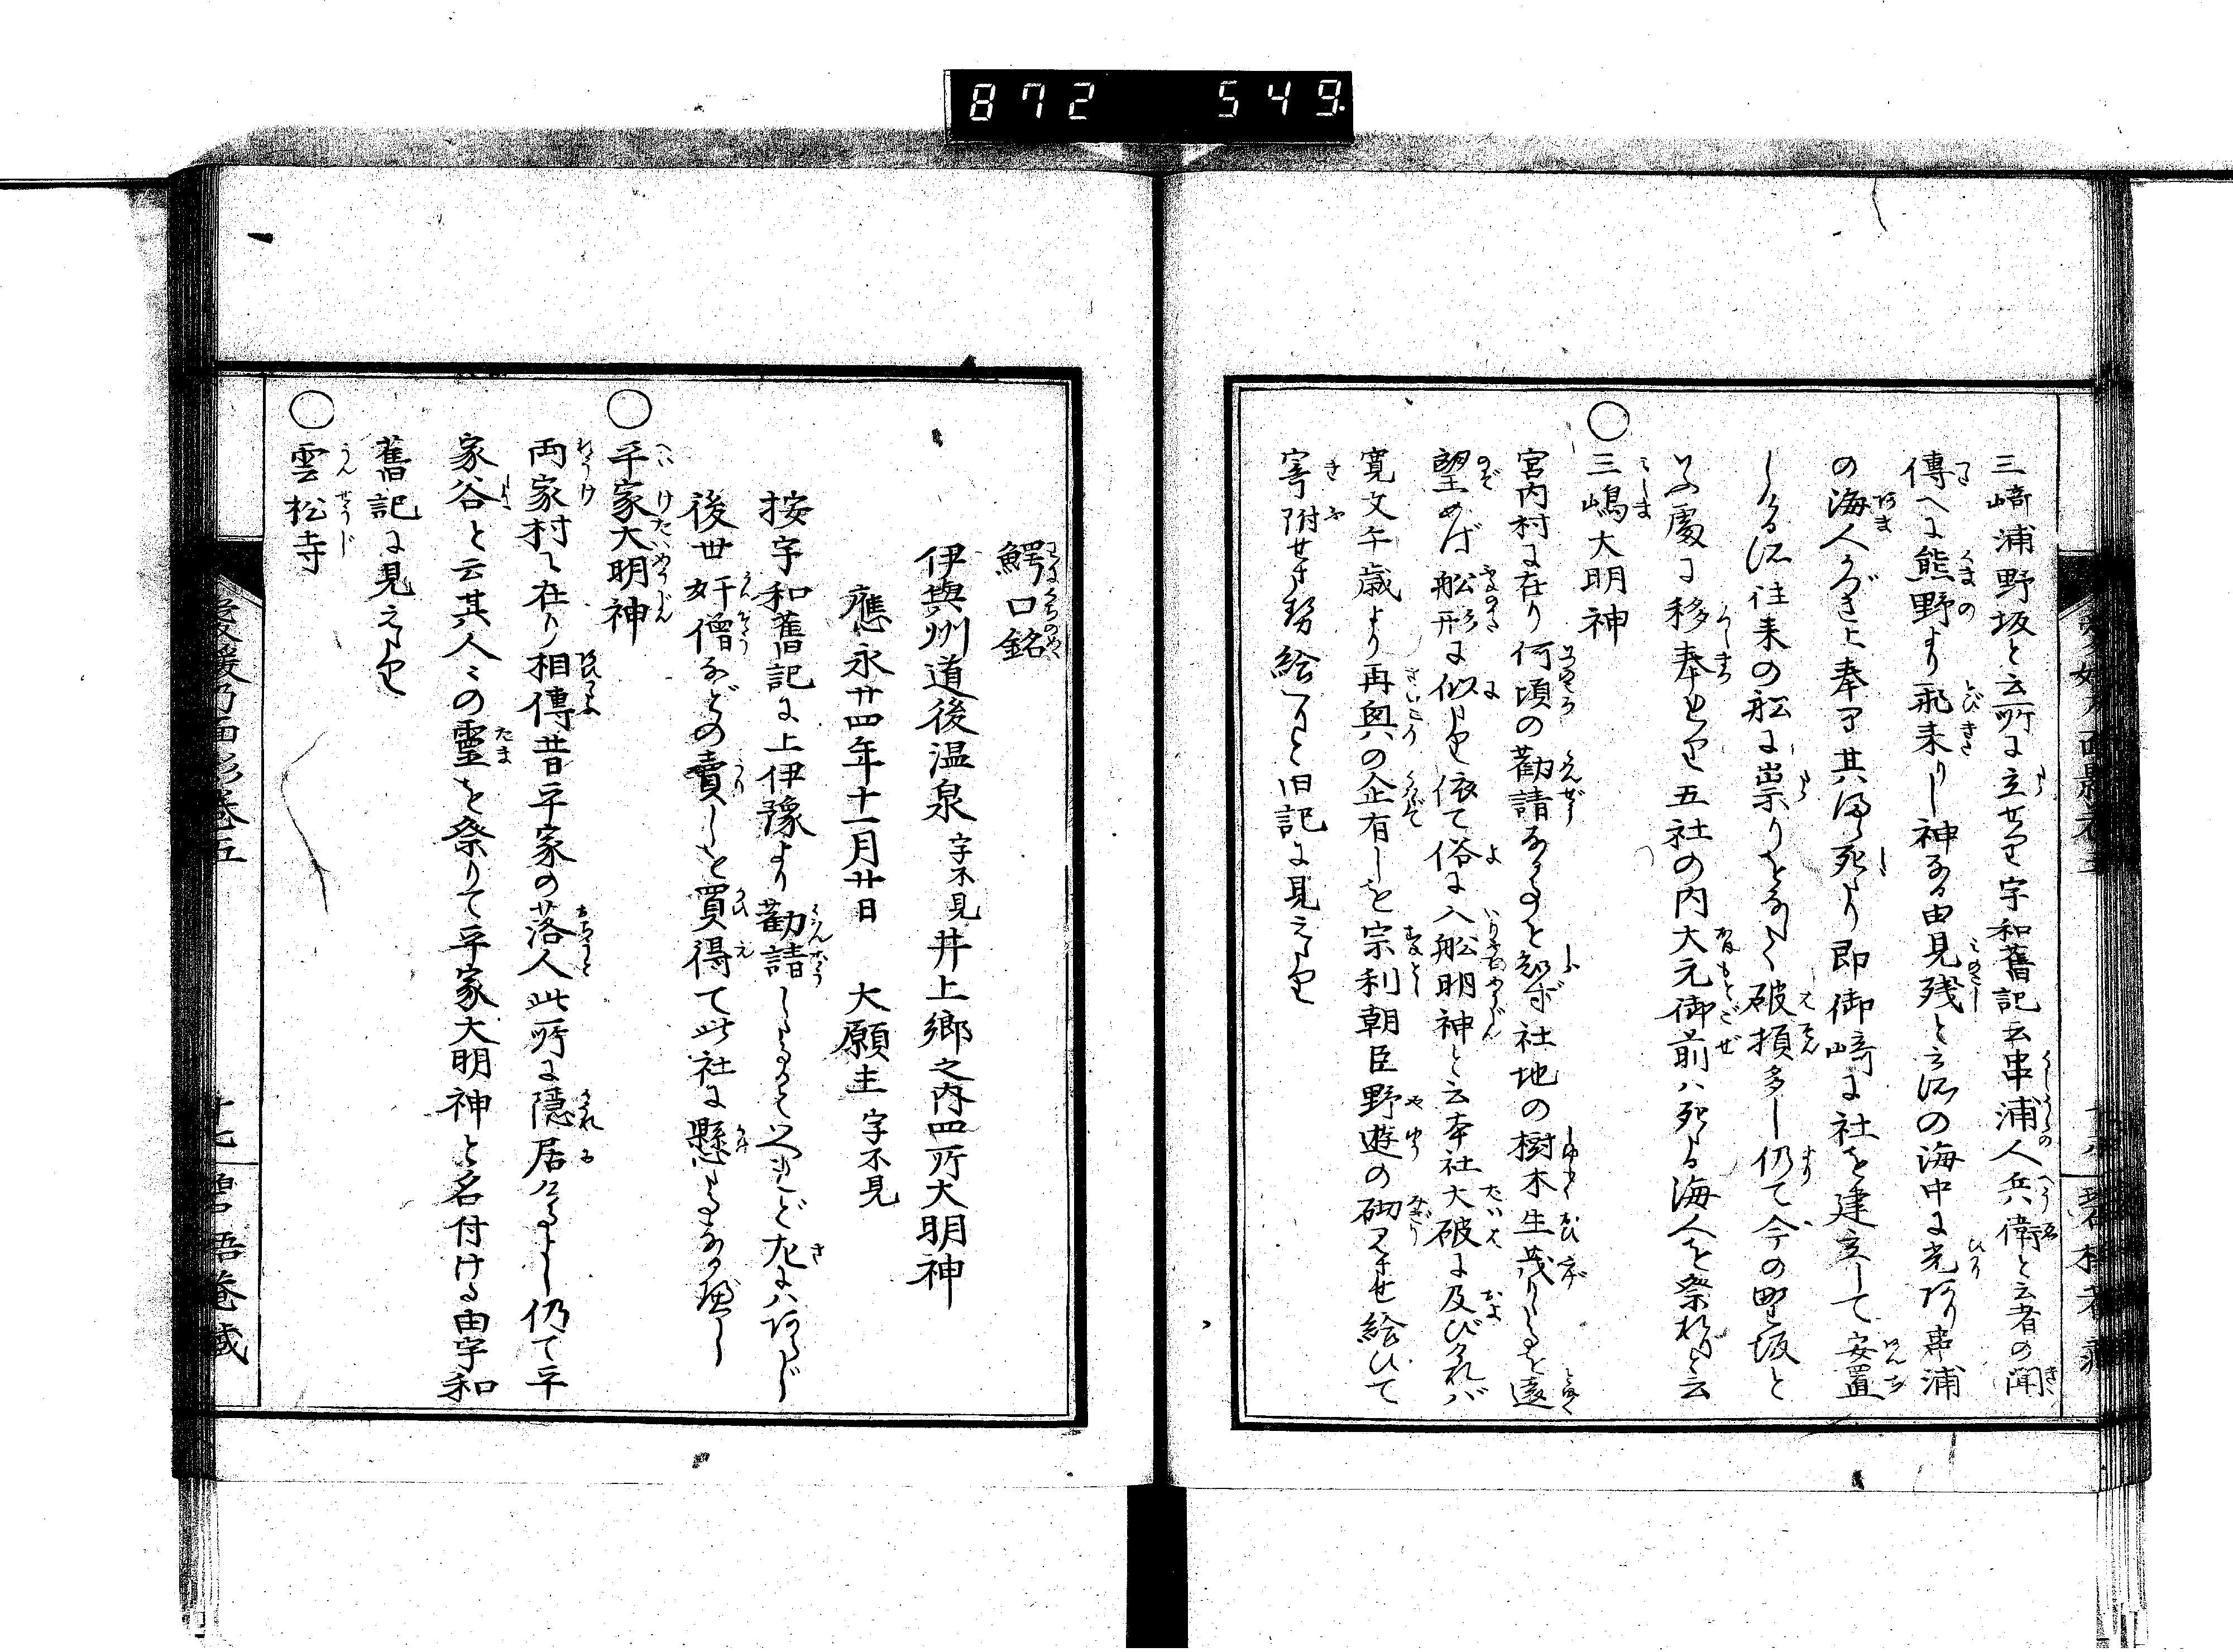 872 549
三﨑浦野坂と云所に立せり宇和舊記云串浦人兵衛と云者の聞
傳へに熊野より飛来りし神なる由見残と云沢の海中に光あり串浦
の海人かづき上奉り其海人死たり即御﨑に社を建立して安置
しける沢往来の舩に祟りをなして破損多し仍て今の野坂と
いふ處に移奉とせり五社の内大元御前ハ死る海人を祭れりと云
○三嶋大明神
宮内村に在り何頃の勧請なる事を知ず社地の樹木生茂りたるを遠
望めば舩形に似たり依て俗に入舩明神と云本社大破に及びければ
寛文午歳より再興の企有しを宗利朝臣野遊の砌見させ給ひて
寄附せさせ給へりと旧記に見えたり
鰐口銘
伊與州道後温泉 字不見 井上郷之内四所大明神
應永廿四年十一月廿日 大願主 字不見
按宇和舊記に上伊豫より勧請したるかと云れど左にハあらじ
後世奸僧などの賣しを買得て此社に懸たるなる べし
○平家大明神
両家村に在り相傳昔平家の落人此所に隠居けるよし仍て平
家谷と云其人々の靈を祭りて平家大明神と名付ける由宇和
舊記に見えたり
○雲松寺
愛媛乃面影巻五
十七 碧梧巻蔵